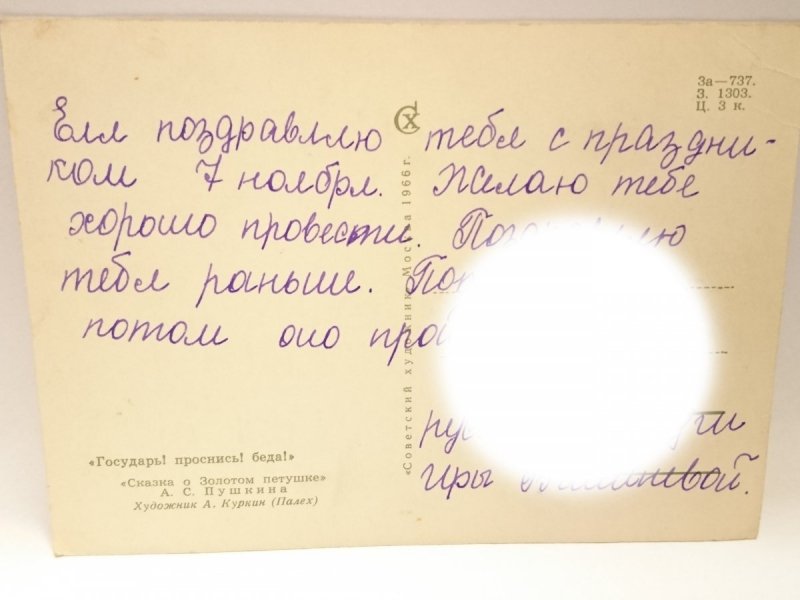 За—737.
З. 1303.
Ц. 3 к.
СХ
Елл поздравллю тебл с праздни-
ком 7 нолбрл. Желаю тебе
хорошо провести.
тебл раньше.
потом оно
Иры
«Советский художник» Москва 1966 г.
«Государь! проснись! беда!»
«Сказка о Золотом петушке»
А. С. Пушкина
Художник А. Куркин (Палех)